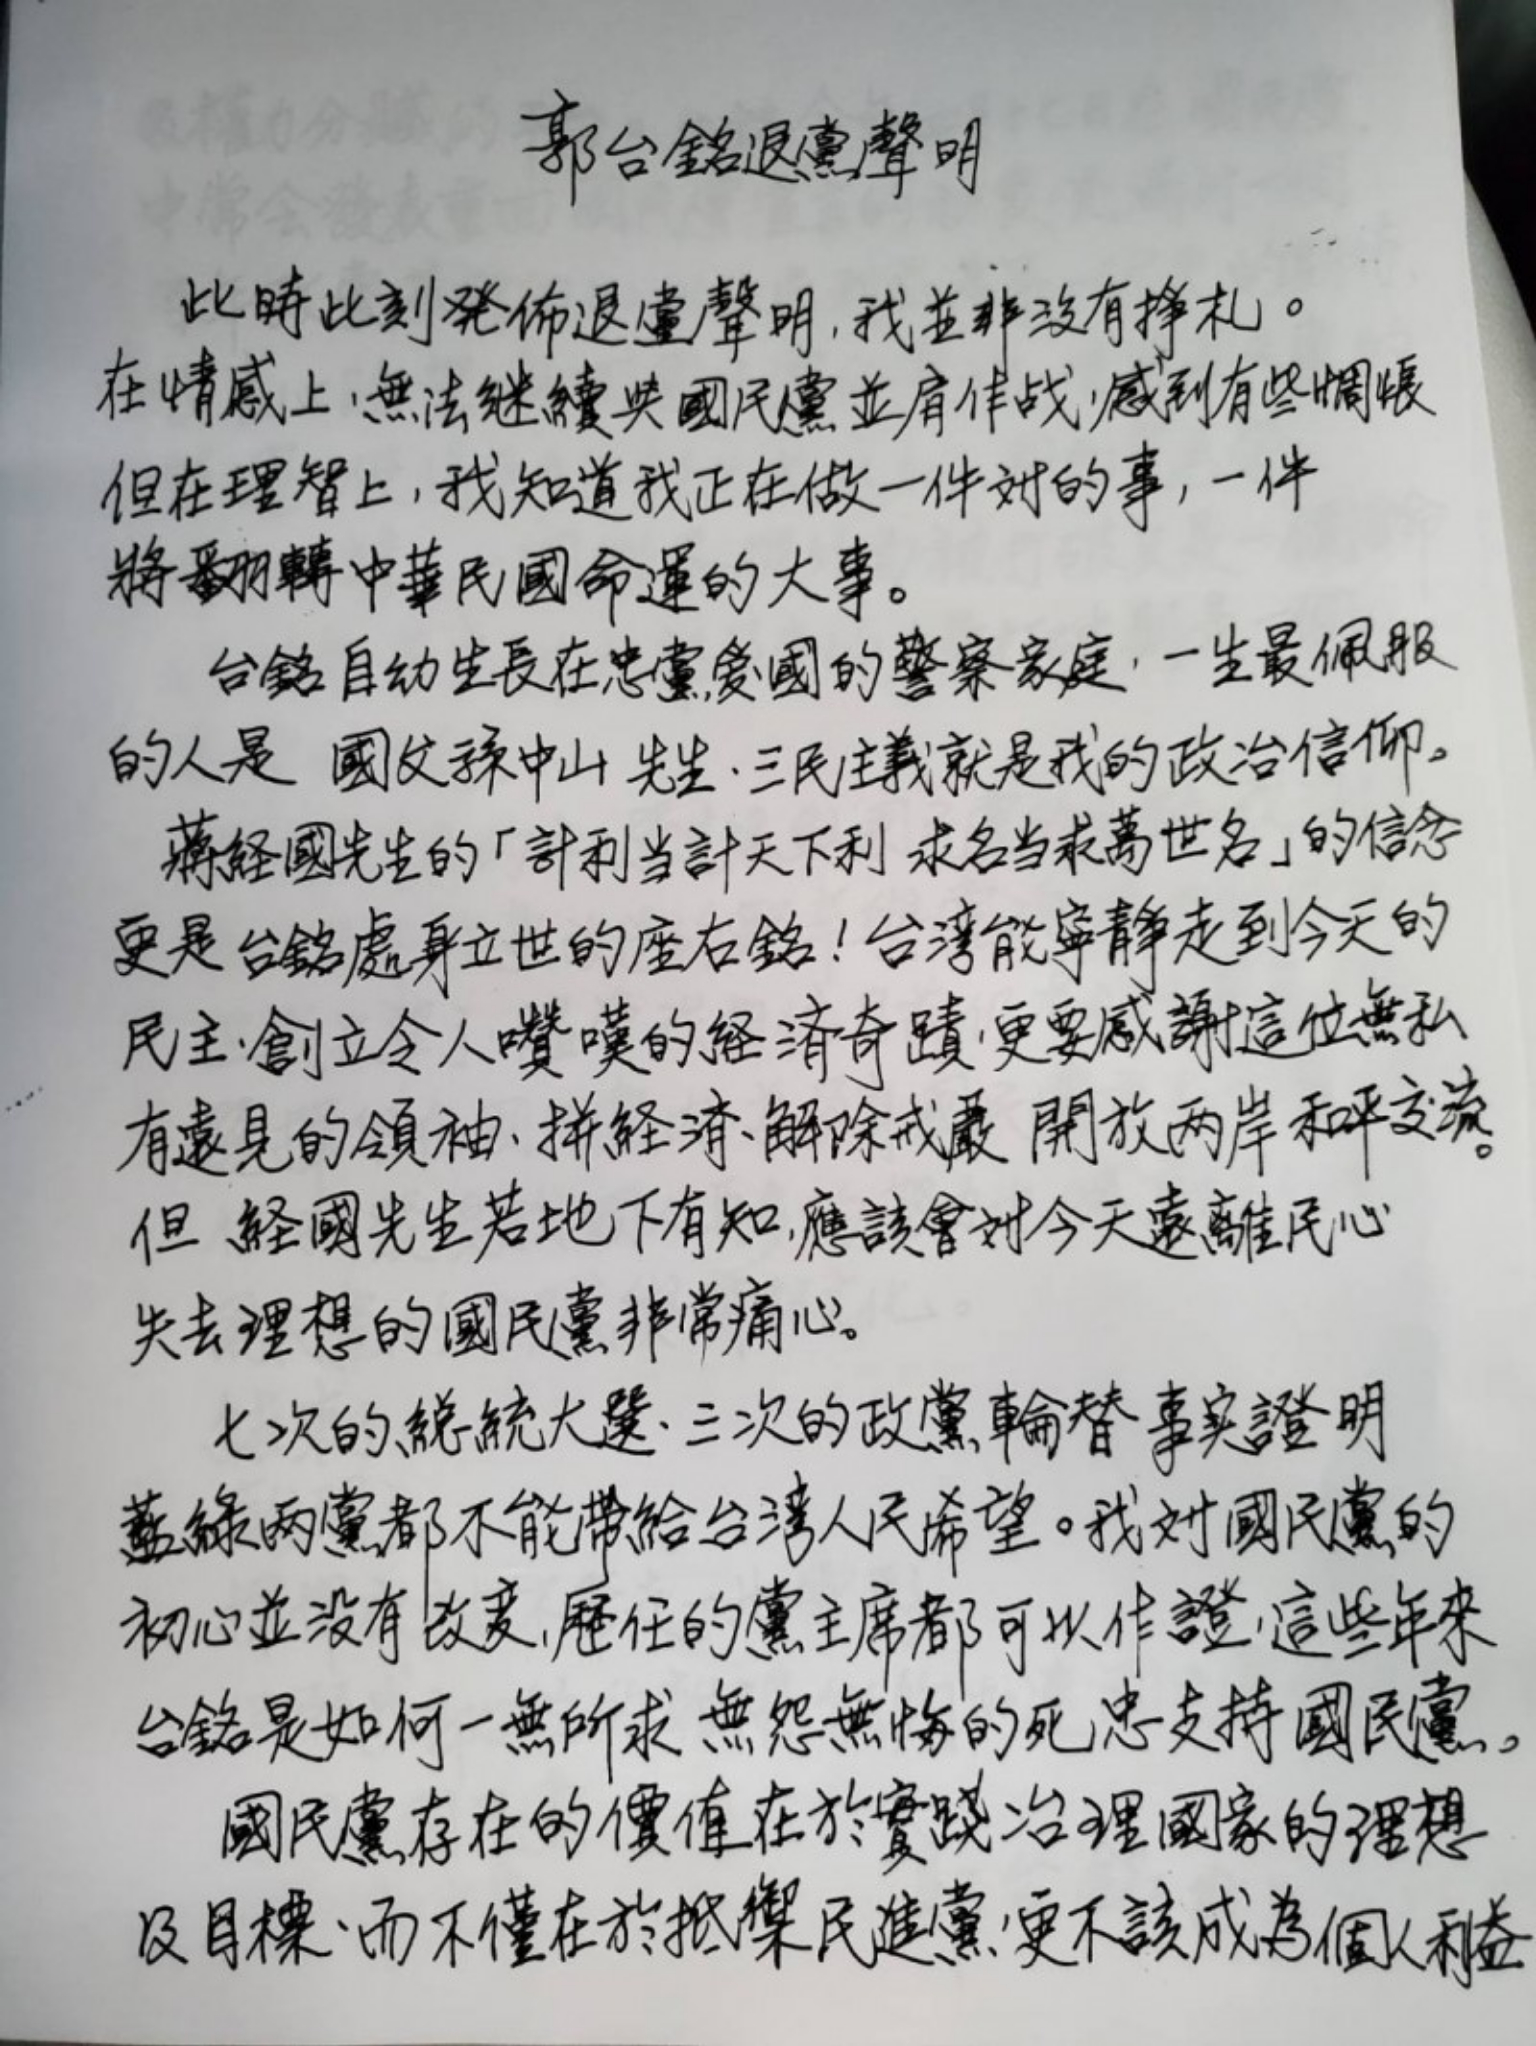 郭台銘退黨聲明
此時此刻発佈退黨聲明,我並非没有掙札。
在情感上、無法継續與國民黨並肩作战,感到有些惆悵
但在理智上,我知道我正在做一件对的事,一件
將翻轉中華民國命運的大事。
台銘自幼生長在忠黨愛國的警察家庭,一生最佩服
的人是 國父孫中山 先生、三民主義就是我的政治信仰。
蔣経國先生的「計利当計天下利 求名当求萬世名」的信念
更是台銘處身立世的座右銘!台湾能寧靜走到今天的
民主、創立令人囋嘆的経済奇蹟,更要感謝這位無私
有遠見的領袖、拼経済、解除戒嚴 開放两岸和平交流。
但 経國先生若地下有知,應該會对今天遠離民心
失去理想的國民黨非常痛心。
七次的総統大選、三次的政黨輪替 事实證明
藍綠两黨都不能帶給台湾人民希望。我对國民黨的
初心並没有改変,歷任的黨主席都可以作證,這些年來
台銘是如何一無所求 無怨無悔的死忠支持國民黨。
國民黨存在的價值在於實踐治理國家的理想
及目標、而不僅在於抵禦民進黨,更不該成為個人利益